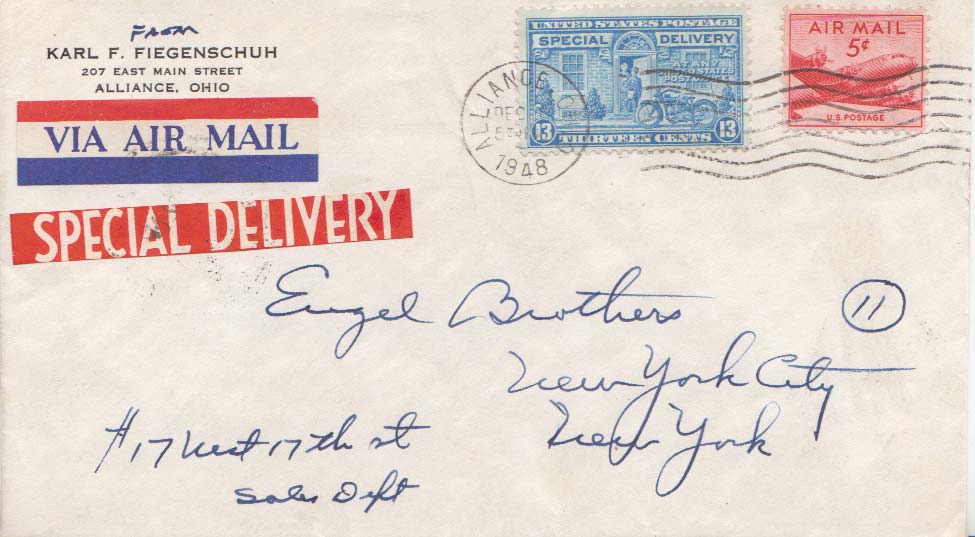 From
KARL F. FIEGENSCHUH
207 EAST MAIN STREET
ALLIANCE, OHIO
VIA AIR MAIL
SPECIAL DELIVERY
UNITED STATES POSTAGE
SPECIAL DELIVERY
AT ANY
UNITED STATES
POST OFFICE
13 THIRTEEN CENTS 13
ALLIANCE
DEC
1948
AIR MAIL
5¢
U.S. POSTAGE
Engel Brothers
11
New York City
New York
#17 West 17th st
Sales Dept